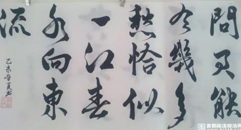 問君能
有幾多
愁恰似
一江春
水向東
流